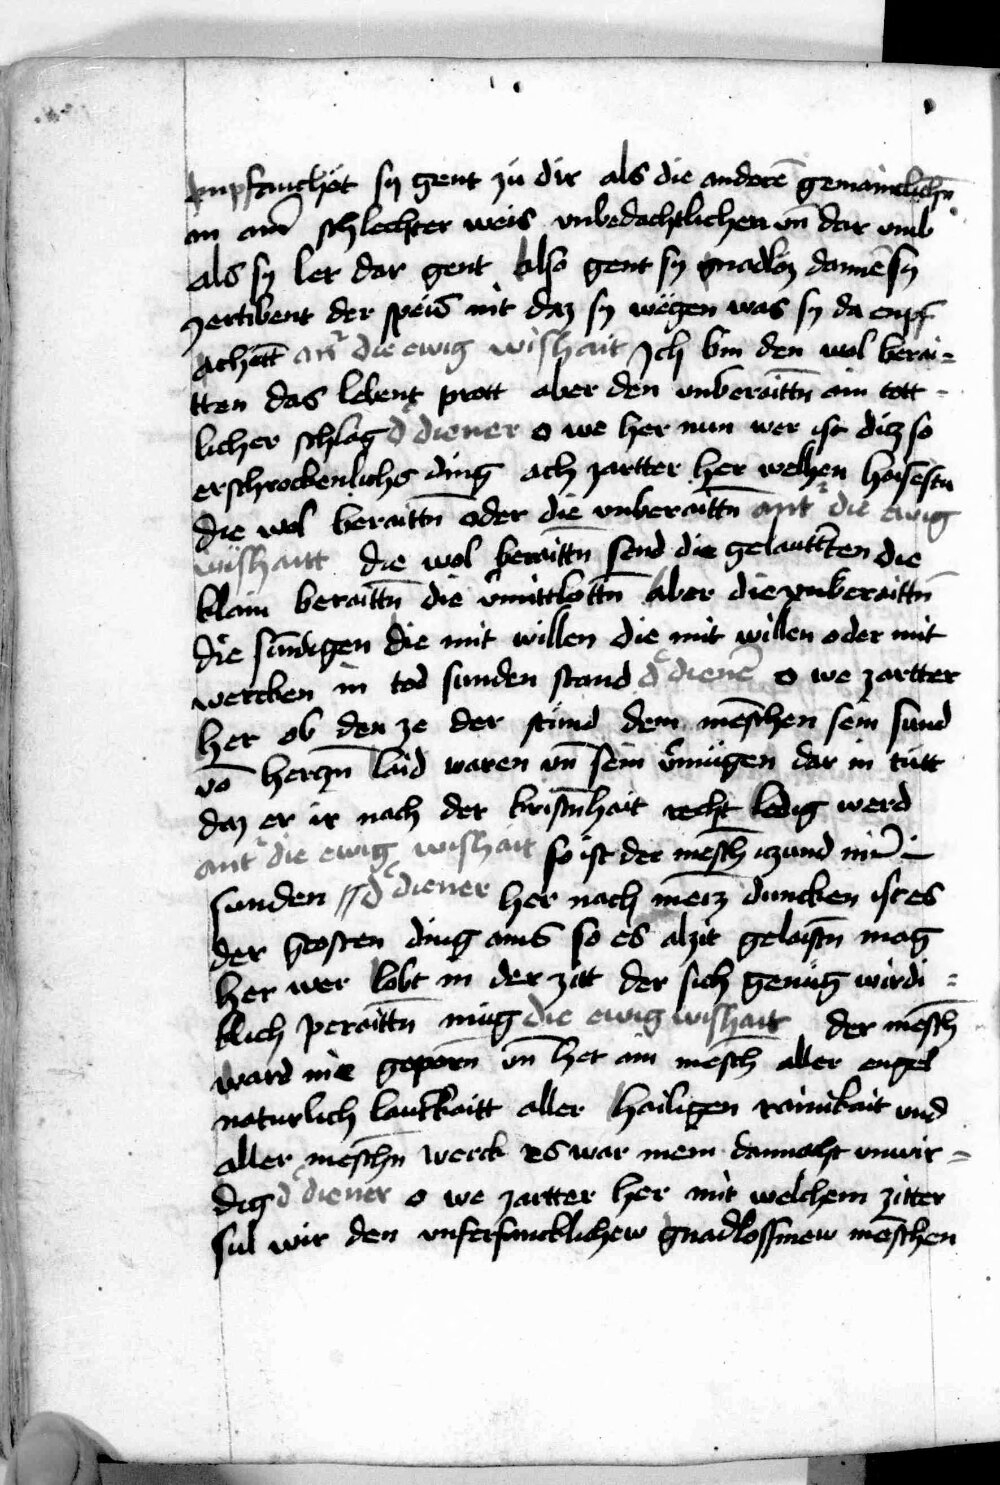 enpfanchöt sy gent zü dir als die anderē gemainclichn̄
an ainr̄ schlechter weis vnbedachtlichen vn̄ dar vmb
als sy ler dar gent also gent sy gnadloz dannē sy
zertibent der speis nit daz sy wëgen was sy da enpf
achett antr̄ die ewig wishait Jch bin den wol berai-
tten das lebent prott aber den vnberaittn̄ ain tott-
licher schlag d̄ diener o we her nun wer ist ditz so
erschrockenlichs ding ach zartter her welhen haisestu
die wol beraittn̄ oder die vnberaittn̄ antr̄ die ewig
wishaitt die wol beraittn̄ send die gelauttrten die
klain beraittn̄ die v̄mittlottn̄ aber die vnberaittn̄
die sündigen die mit willen die mit willen oder mit
wercken in tod sunden stand d̄ dienē o we zartter
her ob den ze der stund dem menschen sein sund
vō herczn̄ laid waren vn̄ sein v̄mügen dar in tutt
daz er ir nach der kristn̄hait recht ledig werd
antr̄ die ewig wishait so ist der mēsch iczund nit in
sunden // d̄ diener her nach meiz duncken ist es
der grosten ding ains so es alzit gelaistn̄ mag
her wer lobt in der zitt der sich genüg wirdi=
klich peraittn̄ müg die ewig wishait der mēsch
ward nie geporn̄ vn̄ het ain mēsch aller engel
naturlich lautkaitt aller hailigen rainikait vnd
aller mēschn̄ werck es war mein dannocht vnwir=
dig d̄ diener o we zartter her mit welchem zitter
sul wir den vnfersancklichew gnadlossinew mēschen